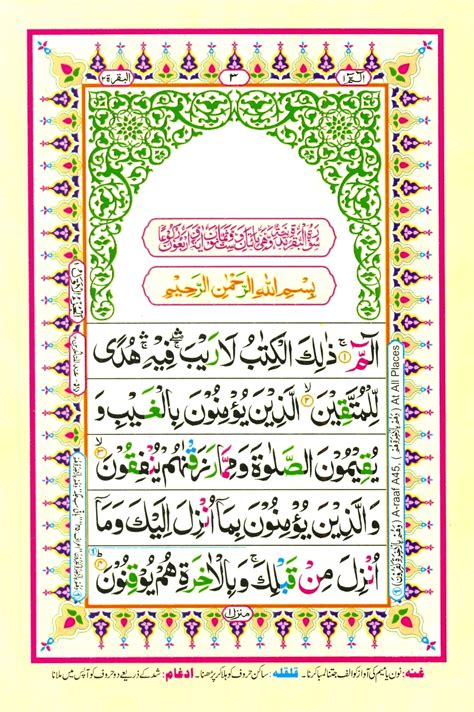 الٓمّٓ ١
٣
البقرة ٢
سورة البقرة مدنية وهي مائتان وست وثمانون آية وأربعون ركوعا
بِسْمِ اللهِ الرَّحْمٰنِ الرَّحِيْمِ
الٓمّٓ ۚ‏ ﴿١﴾ ذٰلِكَ الْكِتٰبُ لَا رَيْبَ ۛۖ فِيْهِ ۛۚ هُدًى
لِّلْمُتَّقِيْنَ ۙ﴿٢﴾ الَّذِيْنَ يُؤْمِنُوْنَ بِالْغَيْبِ وَ
يُقِيْمُوْنَ الصَّلٰوةَ وَمِمَّا رَزَقْنٰهُمْ يُنْفِقُوْنَ ۙ﴿٣﴾
وَالَّذِيْنَ يُؤْمِنُوْنَ بِمَآ اُنْزِلَ اِلَيْكَ وَمَآ
اُنْزِلَ مِنْ قَبْلِكَ ۚ وَبِالْاٰخِرَةِ هُمْ يُوْقِنُوْنَ ؕ﴿٤﴾
At All Places
A-raaf A45,
منزل ١
غنه: نون یا میم کی آواز کو الف جتنا لمبا کرنا۔ قلقله: ساکن حروف کو ہلا کر پڑھنا۔ ادغام: شد کے ذریعے دو حروف کو آپس میں ملانا